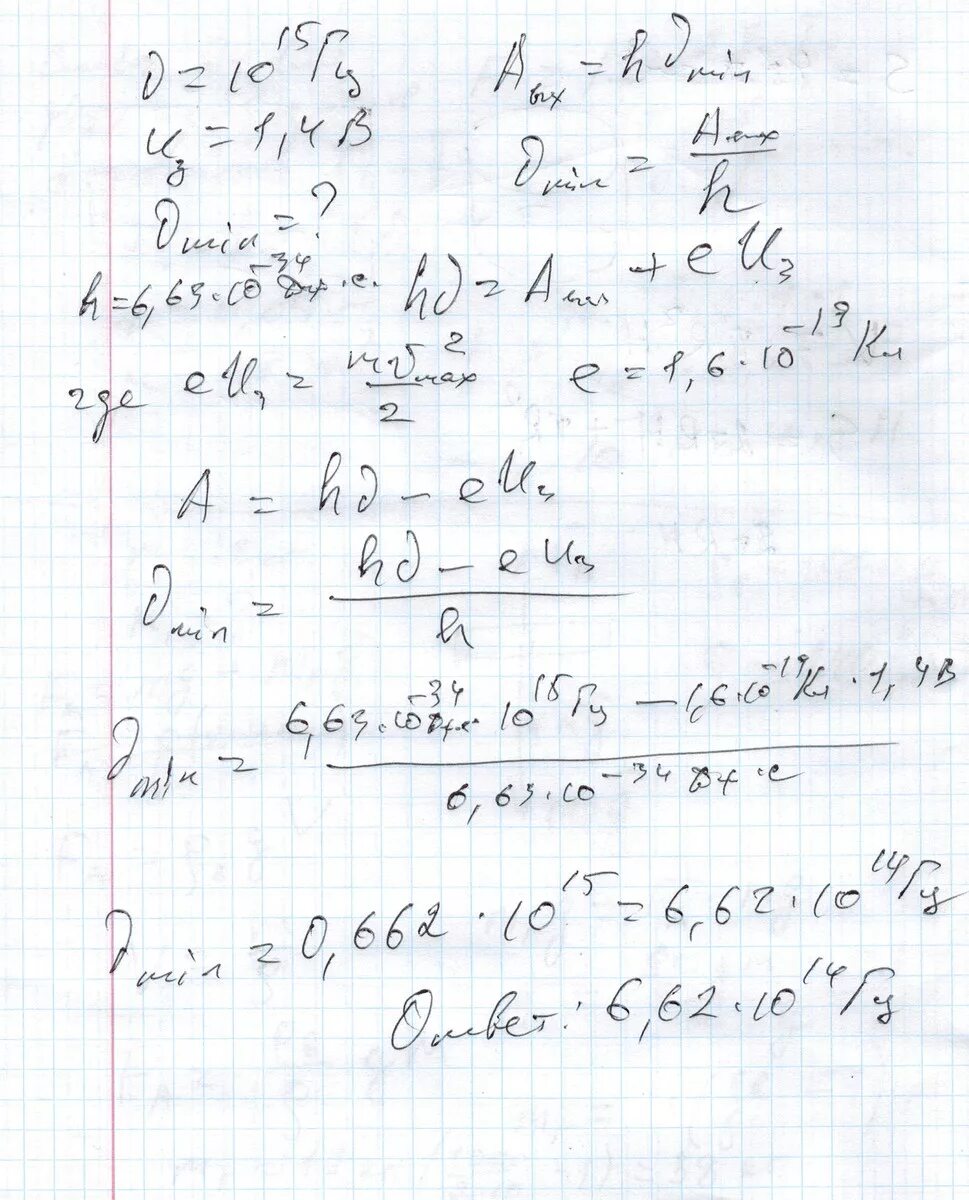 ∂ = 10¹⁵ Гц
A вых = h∂ min
U з = 1,4 В
∂ min = A вых / h
∂ min = ?
h = 6,63·10⁻³⁴ Дж·с.
h∂ = A вых + eU з
где eU з = mv² max / 2
e = 1,6·10⁻¹⁹ Кл
A = h∂ − eU з
∂ min = (h∂ − eU з) / h
∂ min = (6,63·10⁻³⁴ Дж·с 10¹⁵ Гц − 1,6·10⁻¹⁹ Кл · 1,4 В) / (6,63·10⁻³⁴ Дж·с)
∂ min = 0,662 · 10¹⁵ = 6,62·10¹⁴ Гц
Ответ: 6,62·10¹⁴ Гц